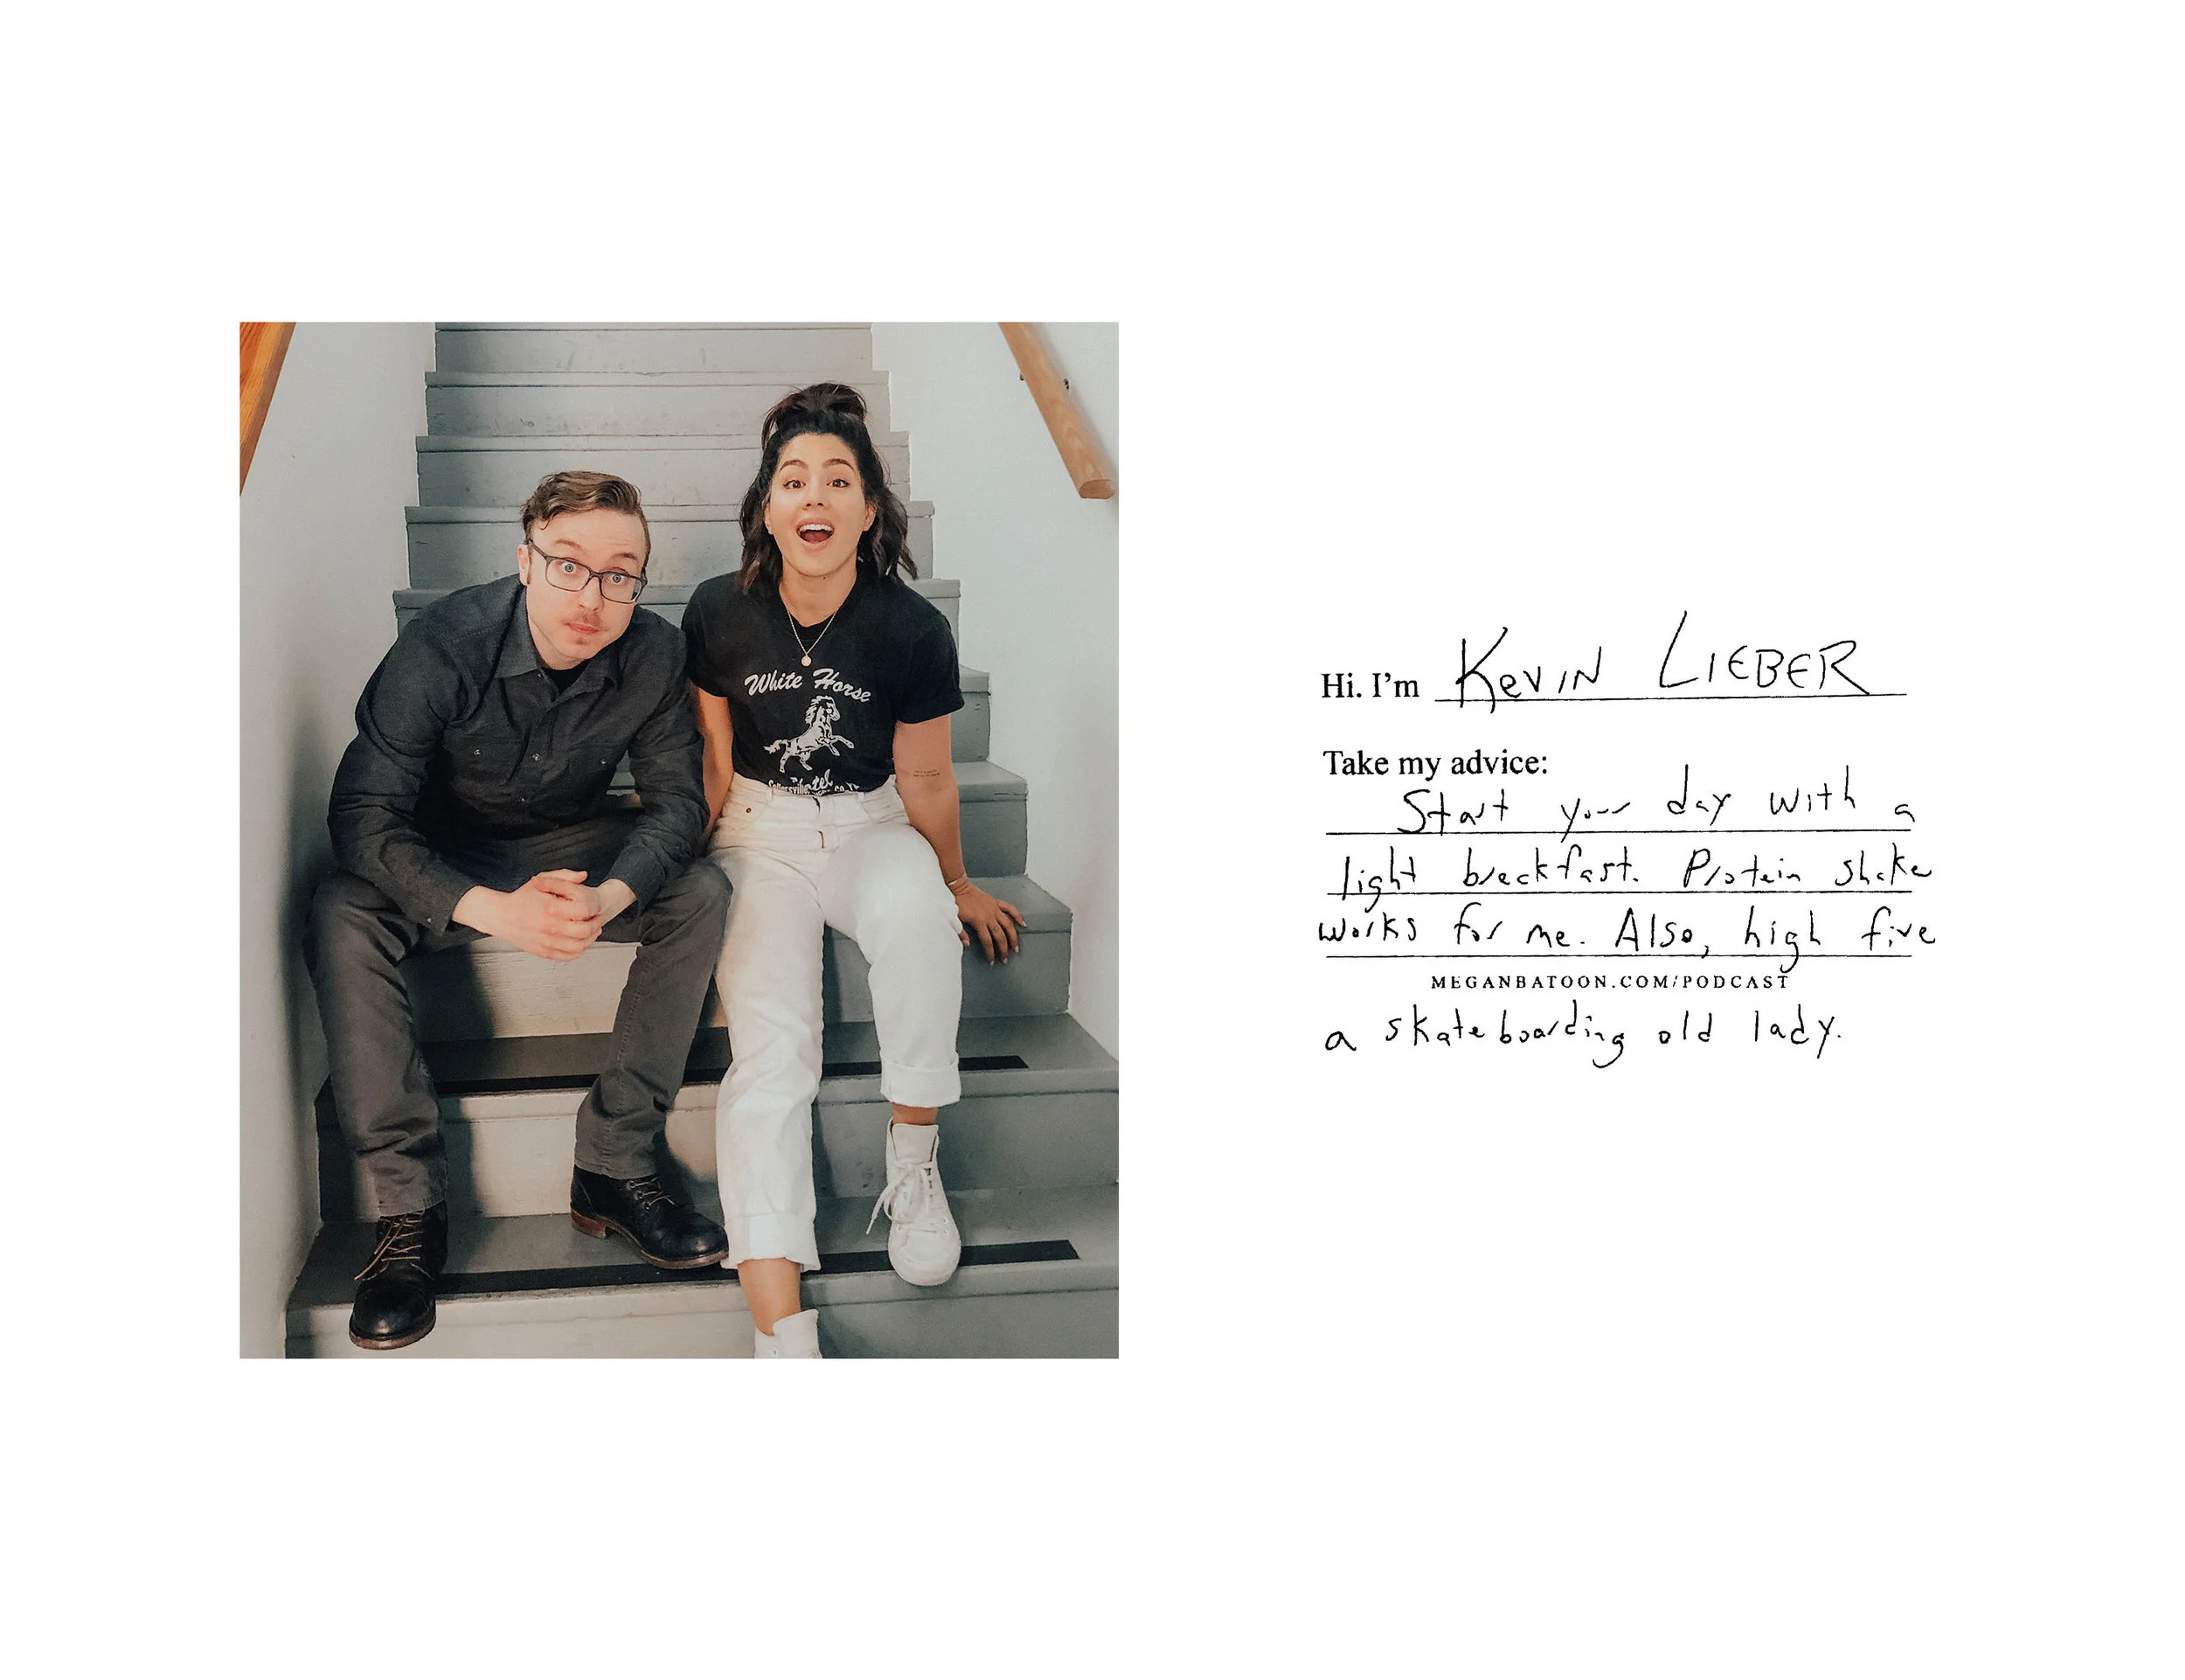 White Horse
Hi. I'm Kevin LIEBER
Take my advice:
Start your day with a
light breakfast. Protein shake
works for me. Also, high five
MEGANBATOON.COM/PODCAST
a skateboarding old lady.